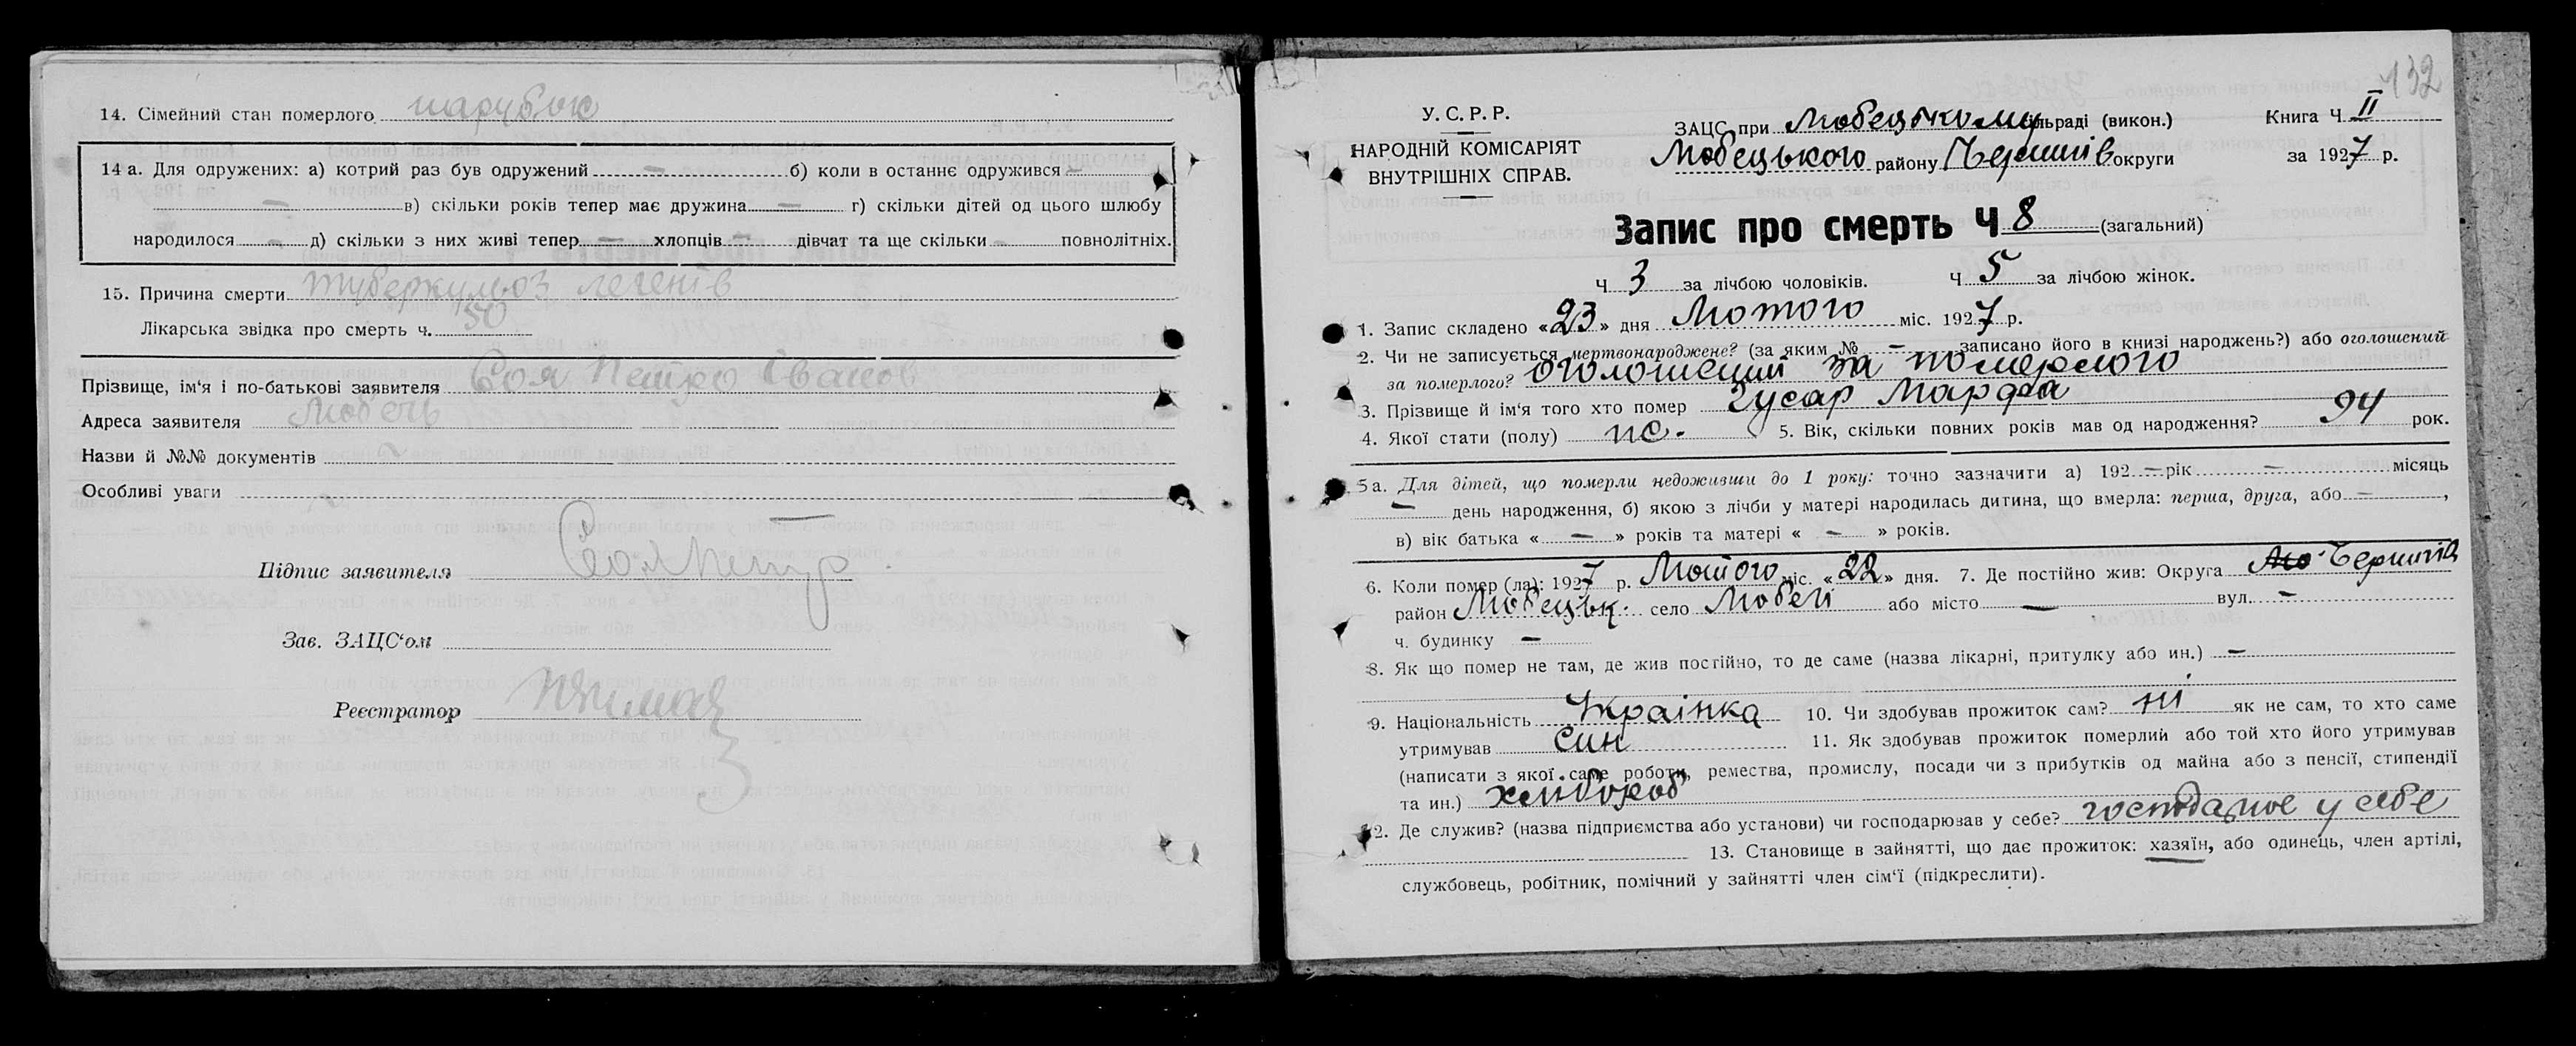 14. Сімейний стан померлого парубок
14 а. Для одружених: а) котрий раз був одружений — б) коли в останнє одружився —
— в) скільки років тепер має дружина — г) скільки дітей од цього шлюбу
народилося — д) скільки з них живі тепер — хлопців — дівчат та ще скільки — повнолітніх.
15. Причина смерти туберкульоз легенів
Лікарська звідка про смерть ч. 50
Прізвище, ім'я і по-батькові заявителя Соя Петро Іванов
Адреса заявителя Любеч
Назви й №№ документів
Особливі уваги —
Підпис заявителя Соя Петр
Зав. ЗАЦС'ом
Реєстратор
132
У. С. Р. Р.
НАРОДНІЙ КОМІСАРІЯТ
ВНУТРІШНІХ СПРАВ.
ЗАЦС при Любецькому сільраді (викон.)
Любецького району Чернигів округи
Книга Ч II
за 1927 р.
Запис про смерть Ч 8 (загальний)
Ч 3 за лічбою чоловіків. Ч 5 за лічбою жінок.
1. Запис складено «23» дня Лютого міс. 1927 р.
2. Чи не записується мертвонароджене? (за яким № — записано його в книзі народжень?) або оголошений
за померлого? оголошений за померлого
3. Прізвище й ім'я того хто помер Гусар Марфа
4. Якої стати (полу) ж. 5. Вік, скільки повних років мав од народження? 94 рок.
5 а. Для дітей, що померли недоживши до 1 року: точно зазначити а) 192 — рік — місяць
— день народження, б) якою з лічби у матері народилась дитина, що вмерла: перша, друга, або — ,
в) вік батька « — » років та матері « — » років.
6. Коли помер (ла): 1927 р. Лютого міс. «22» дня. 7. Де постійно жив: Округа Чернигів
район Любецьк. село Любеч або місто — вул. —
ч. будинку —
8. Як що помер не там, де жив постійно, то де саме (назва лікарні, притулку або ин.) —
9. Національність Українка 10. Чи здобував прожиток сам? ні як не сам, то хто саме
утримував син 11. Як здобував прожиток померлий або той хто його утримував
(написати з якої саме роботи, ремества, промислу, посади чи з прибутків од майна або з пенсії, стипендії
та ин.) хлібороб
12. Де служив? (назва підприємства або установи) чи господарював у себе? господарює у себе
13. Становище в зайнятті, що дає прожиток: хазяїн, або одинець, член артілі,
службовець, робітник, помічний у зайнятті член сім'ї (підкреслити).